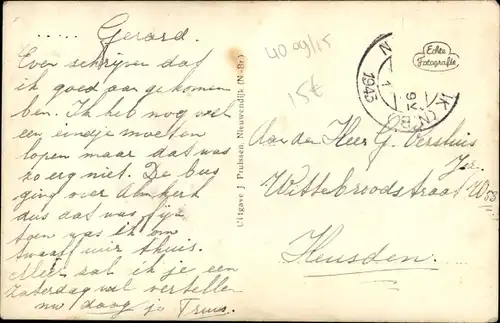 ..... Gerard.
Even schrijven dat
ik goed aan gekomen
ben. Ik heb nog wel
een eindje moeten
lopen maar dat was
zo erg niet. De bus
ging over Almkerk
dus dat was fijn
toen was ik om
twaalf uur thuis.
Meer zal ik je een
Zaterdag wel vertellen
nu daag je Truus.
Uitgave J. Pruissen, Nieuwendijk (N.-Br.)
4009/15
15€
Echte
Fotografie
1945
Aan den Heer G. Vershuis
Jzn.
Wittebroodstraat W
Heusden.